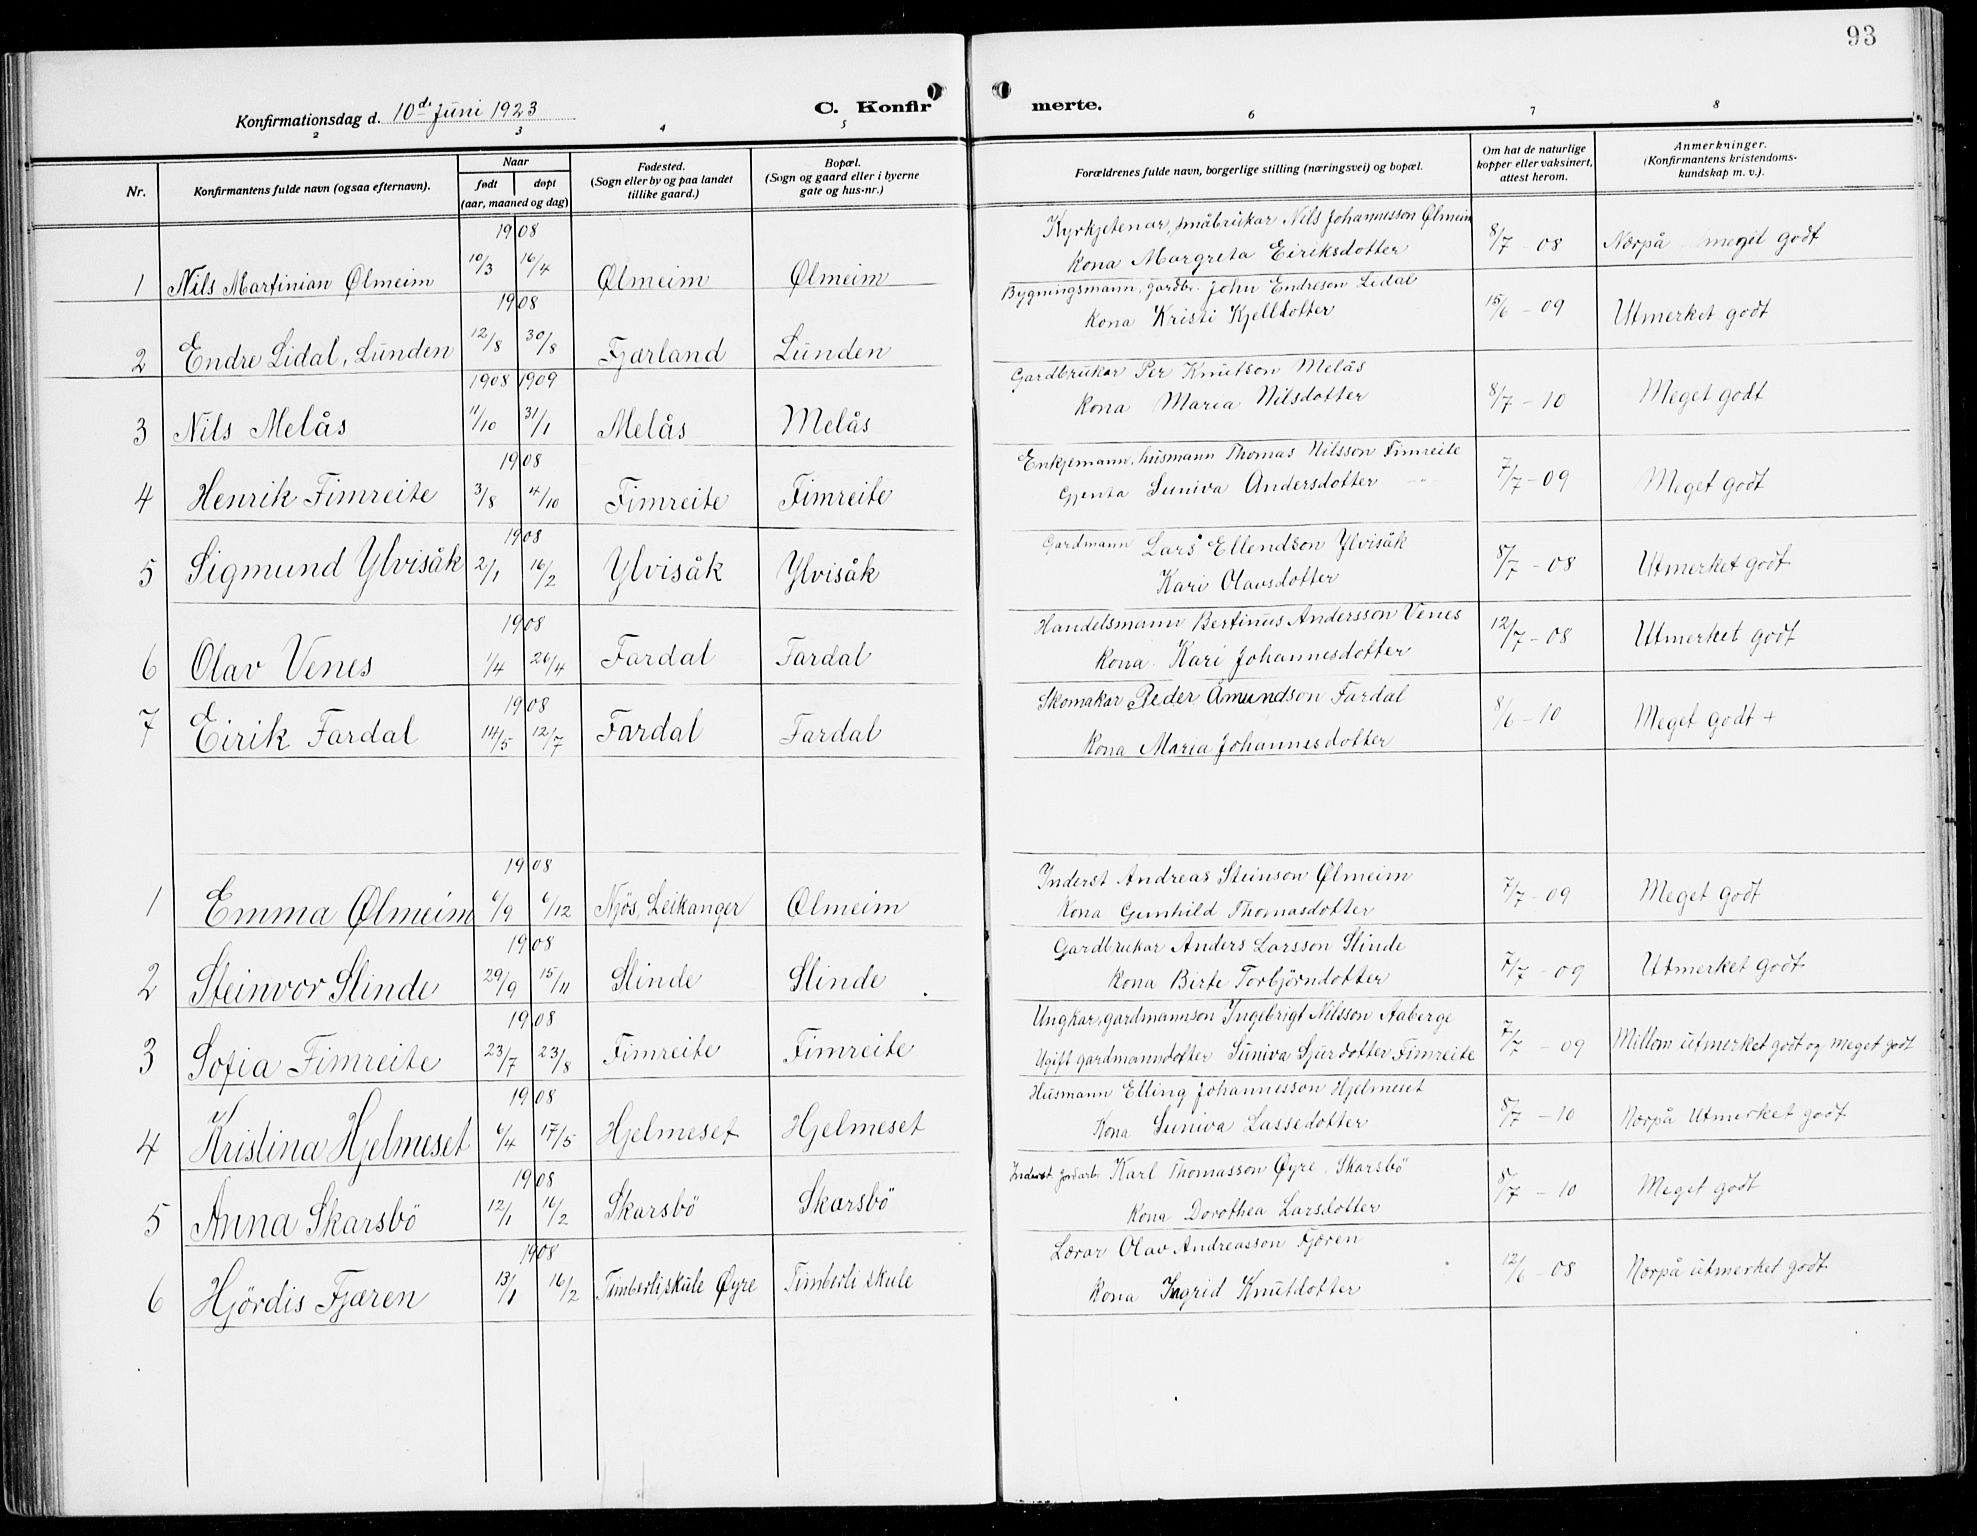 93
Konfirmationsdag d. 10de Juni 1923
C. Konfirmerte.
2 3 4 5 6 7 8
Nr. | Konfirmantens fulde navn (ogsaa efternavn). | Naar født | døpt (aar, maaned og dag) | Fødested. (Sogn eller by og paa landet tillike gaard.) | Bopæl. (Sogn og gaard eller i byerne gate og hus-nr.) | Forældrenes fulde navn, borgerlige stilling (næringsvei) og bopæl. | Om hat de naturlige kopper eller vaksinert, attest herom. | Anmerkninger. (Konfirmantens kristendoms-kundskap m. v.).
1908
1 Nils Martinian Ølmeim 10/3 16/4 Ølmeim Ølmeim Kyrkjetenar, småbrukar Nils Johannesson Ølmeim
Kona Margreta Eiriksdotter 8/7 - 08 Nærpå meget godt
1908
2 Endre Lidal, Lunden 12/8 30/8 Fjærland Lunden Bygningsmann, gardbr. John Endreson Lidal
Kona Kristi Kjelldotter 15/6 - 09 Utmerket godt
1908 1909
3 Nils Melås 11/10 31/1 Melås Melås Gardbrukar Per Knutson Melås
Kona Maria Nilsdotter 8/7 - 10 Meget godt
1908
4 Henrik Fimreite 3/8 4/10 Fimreite Fimreite Enkjemann, husmann Thomas Nilsson Fimreite
Gjenta Suniva Andersdotter -"- 7/7 - 09 Meget godt
1908
5 Sigmund Ylvisåk 2/1 16/2 Ylvisåk Ylvisåk Gardmann Lars Ellendson Ylvisåk
Kari Olavsdotter 8/7 - 08 Utmerket godt
1908
6 Olav Venes 1/4 26/4 Fardal Fardal Handelsmann Bertinus Andersson Venes
Kona Kari Johannesdotter 12/7 - 08 Utmerket godt
1908
7 Eirik Fardal 14/5 12/7 Fardal Fardal Skomakar Peder Åmundson Fardal
Kona Maria Johannesdotter 8/6 - 10 Meget godt +
1908
1 Emma Ølmeim 6/9 6/12 Njøs, Leikanger Ølmeim Inderst Andreas Steinson Ølmeim
Kona Gunhild Thomasdotter 7/7 - 09 Meget godt
1908
2 Steinvor Slinde 29/9 15/11 Slinde Slinde Gardbrukar Anders Larsson Slinde
Kona Birte Torbjörndotter 7/7 - 09 Utmerket godt
1908
3 Sofia Fimreite 23/7 23/8 Fimreite Fimreite Ungkar, gardmannson Ingebrigt Nilsson Aaberge
Ugift gardmanndotter Suniva Sjurdotter Fimreite 7/7 - 09 Millom utmerket godt og meget godt
1908
4 Kristina Hjelmeset 6/4 17/5 Hjelmeset Hjelmeset Husmann Elling Johannesson Hjelmeset
Kona Suniva Lassedotter 8/7 - 10 Nærpå Utmerket godt
1908
5 Anna Skarsbö 12/1 16/2 Skarsbö Skarsbö Inderst. Jordarb. Karl Thomasson Øyre, Skarsbö
Kona Dorothea Larsdotter 8/7 - 10 Meget godt
1908
6 Hjördis Fjæren 13/1 16/2 Timberliskule Øyre Timberli skule Lærar Olav Andreasson Fjæren
Kona Ingrid Knutdotter 12/6 - 08 Nærpå utmerket godt